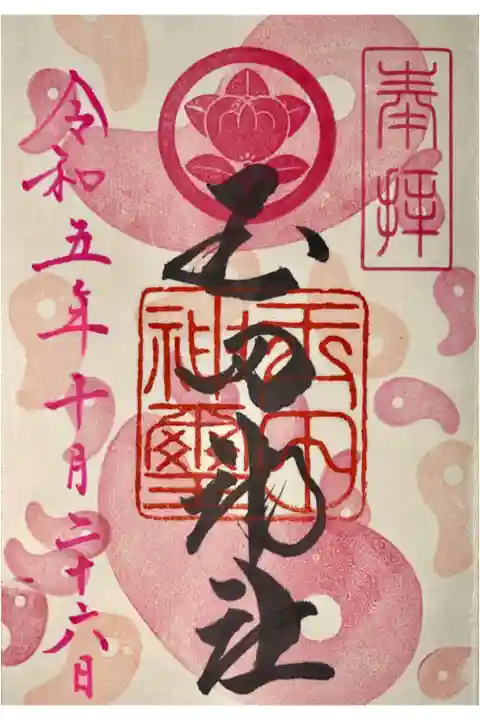 奉拝
玉田神社
玉田
神璽
令和五年十月二十六日